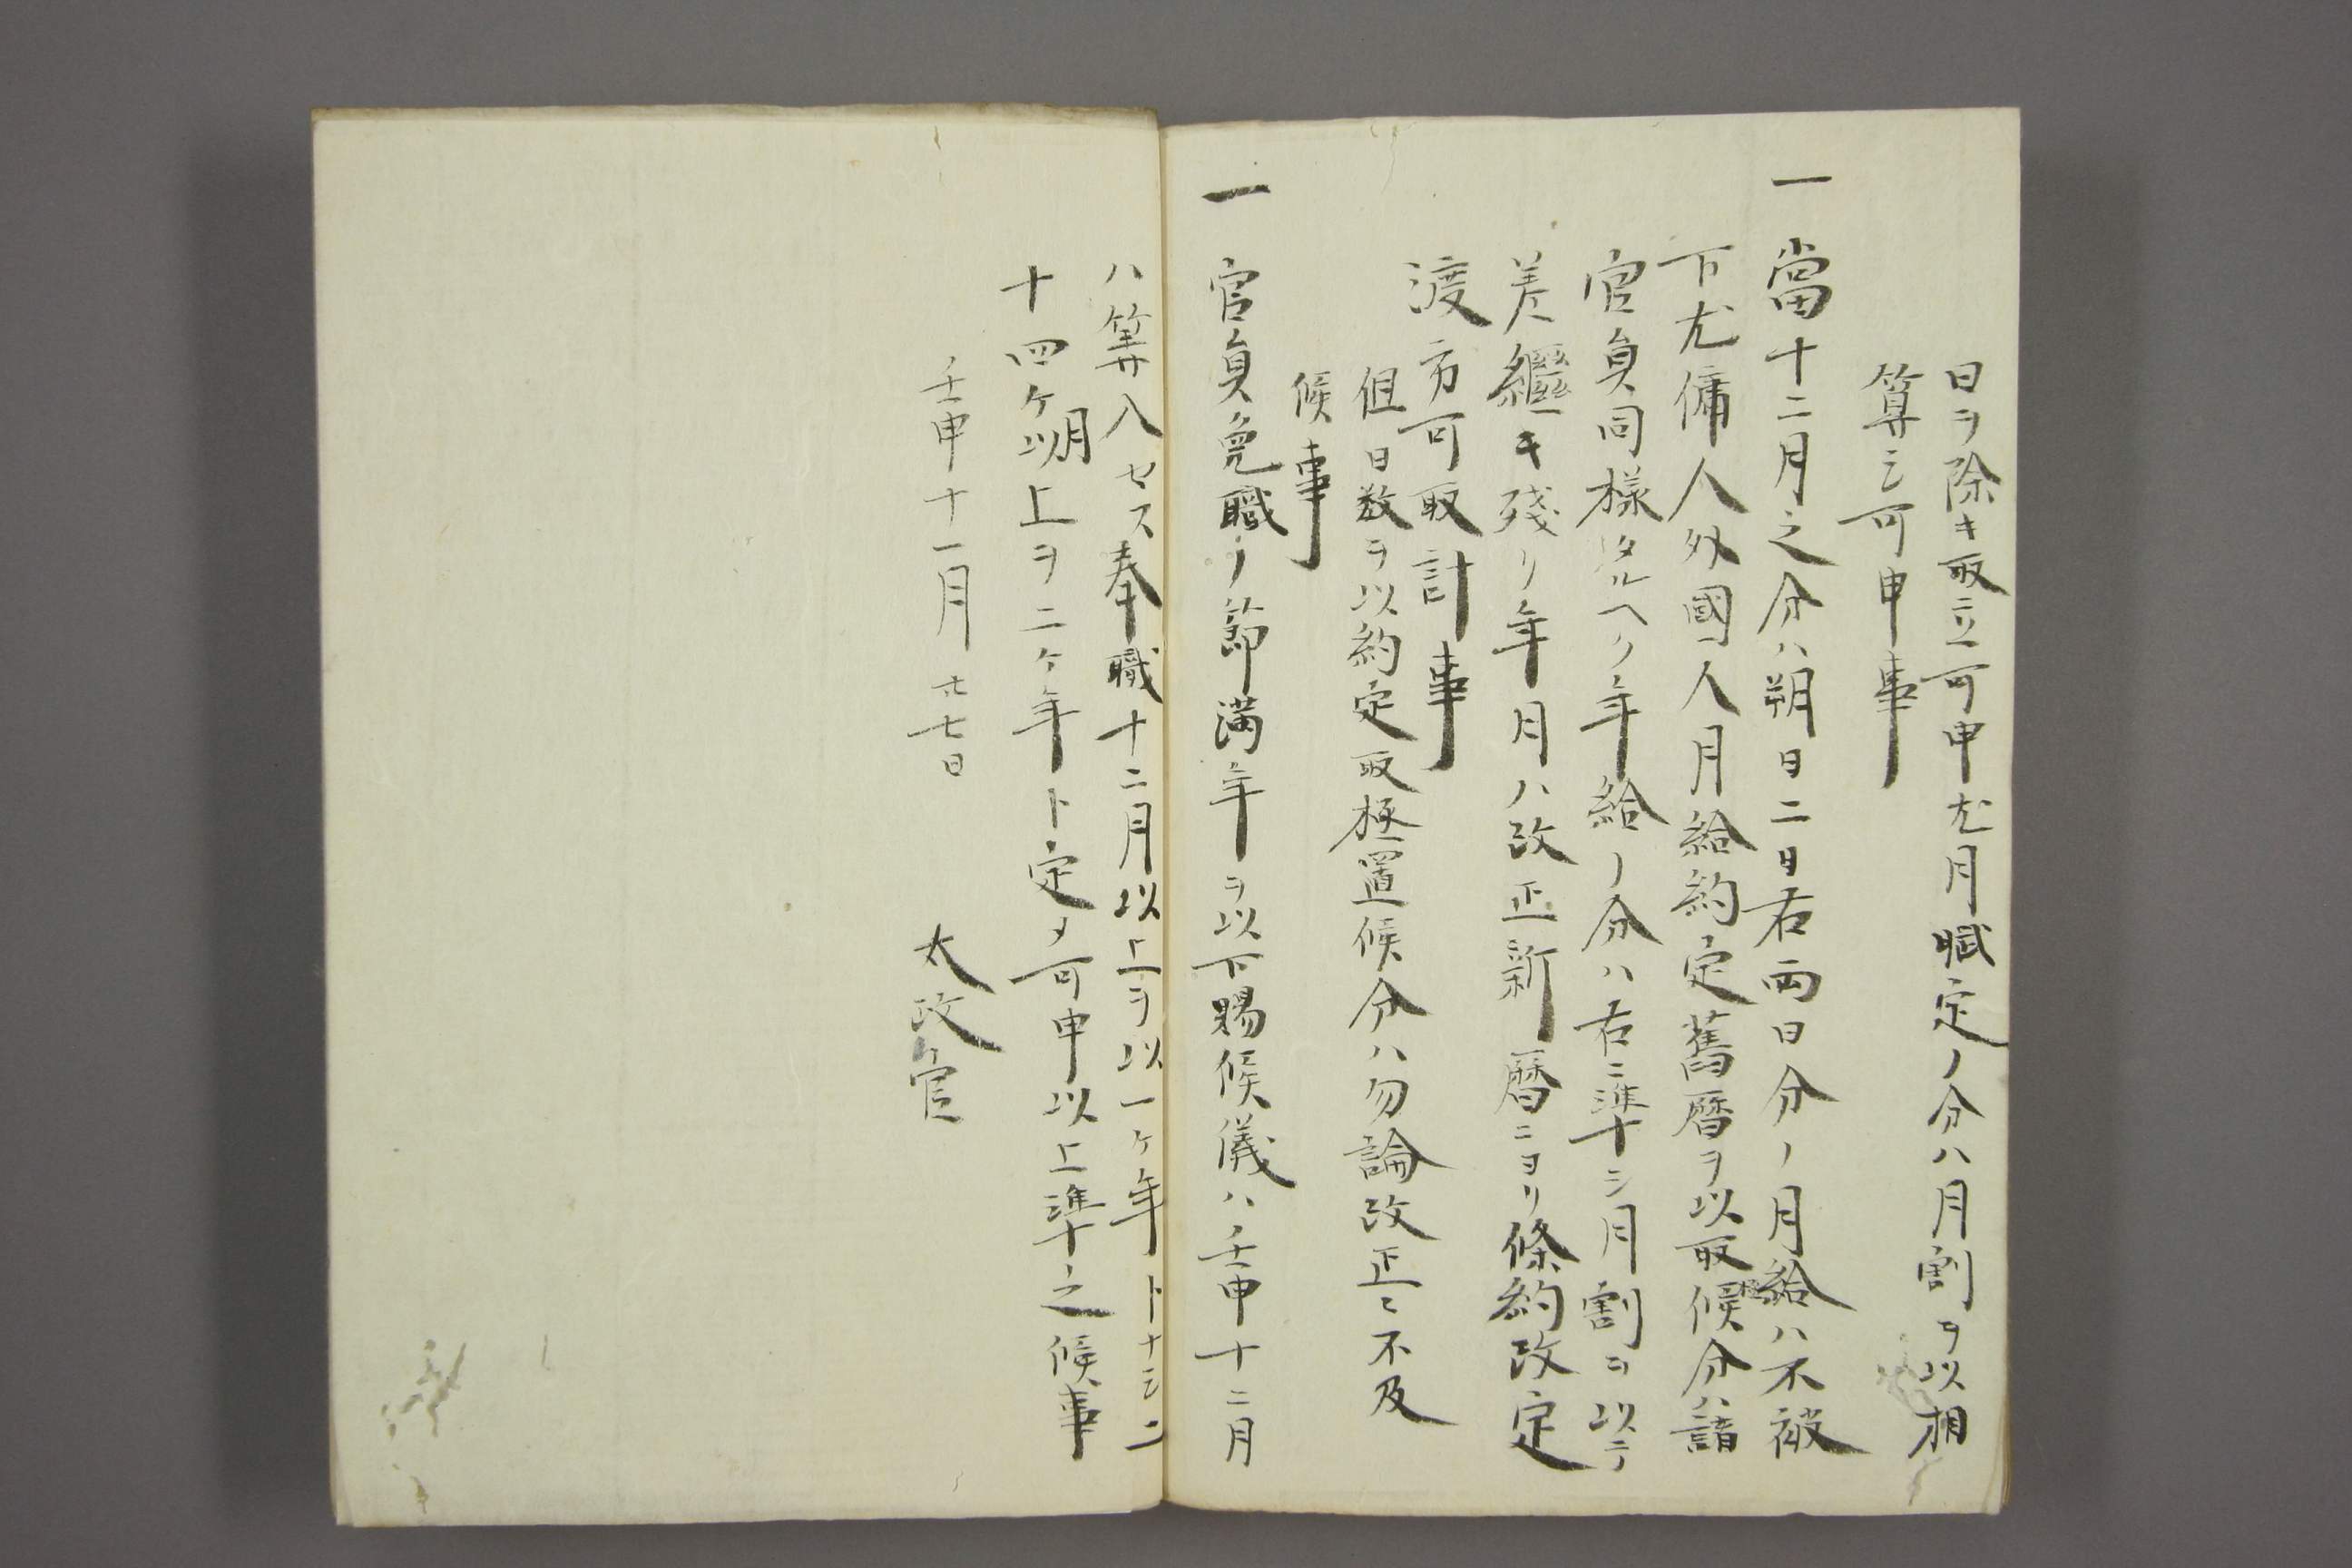 日ヲ除キ取立可申尤月賦定ノ分ハ月割ヲ以相
算シ可申事
一當十二月之分ハ朔日二日右両日分ノ月給ハ不被
下尤傭人外國人月給約定舊暦ヲ以取極候分ハ諸
官員同様タルヘク年給ノ分ハ右ニ準シ月割ヲ以テ
差繼キ殘リ年月ハ改正新暦ニヨリ條約改定
渡方可取計事
但日数ヲ以約定取極置候分ハ勿論改正ニ不及
候事
一官員免職ノ節満年ヲ以下賜候儀ハ壬申十二月
ハ算入セス奉職十二月以上ヲ以一ケ年ト十シ二
十四ケ月以上ヲ二ケ年ト定メ可申以上準之候事
壬申十一月廿七日 太政官